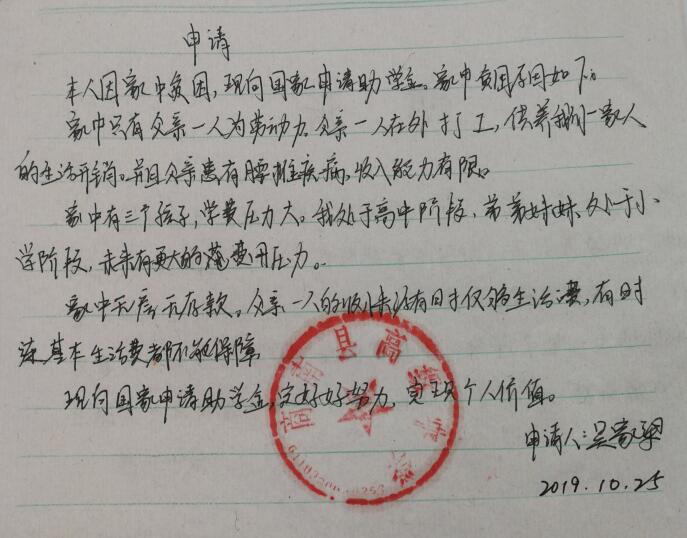 申请
本人因家中贫困,现向国家申请助学金。家中贫困原因如下:
家中只有父亲一人为劳动力。父亲一人在外打工,供养我们一家人
的生活开销。并且父亲患有腰椎疾病,收入能力有限。
家中有三个孩子,学费压力大。我处于高中阶段,弟弟妹妹处于小
学阶段,未来有更大的花费用压力。
家中无房,无存款。父亲一人的收来说有时仅够生活费,有时
连基本生活费都不能保障
现向国家申请助学金,定好好努力,实现个人价值。
申请人:吴家
2019.10.25
商南县高